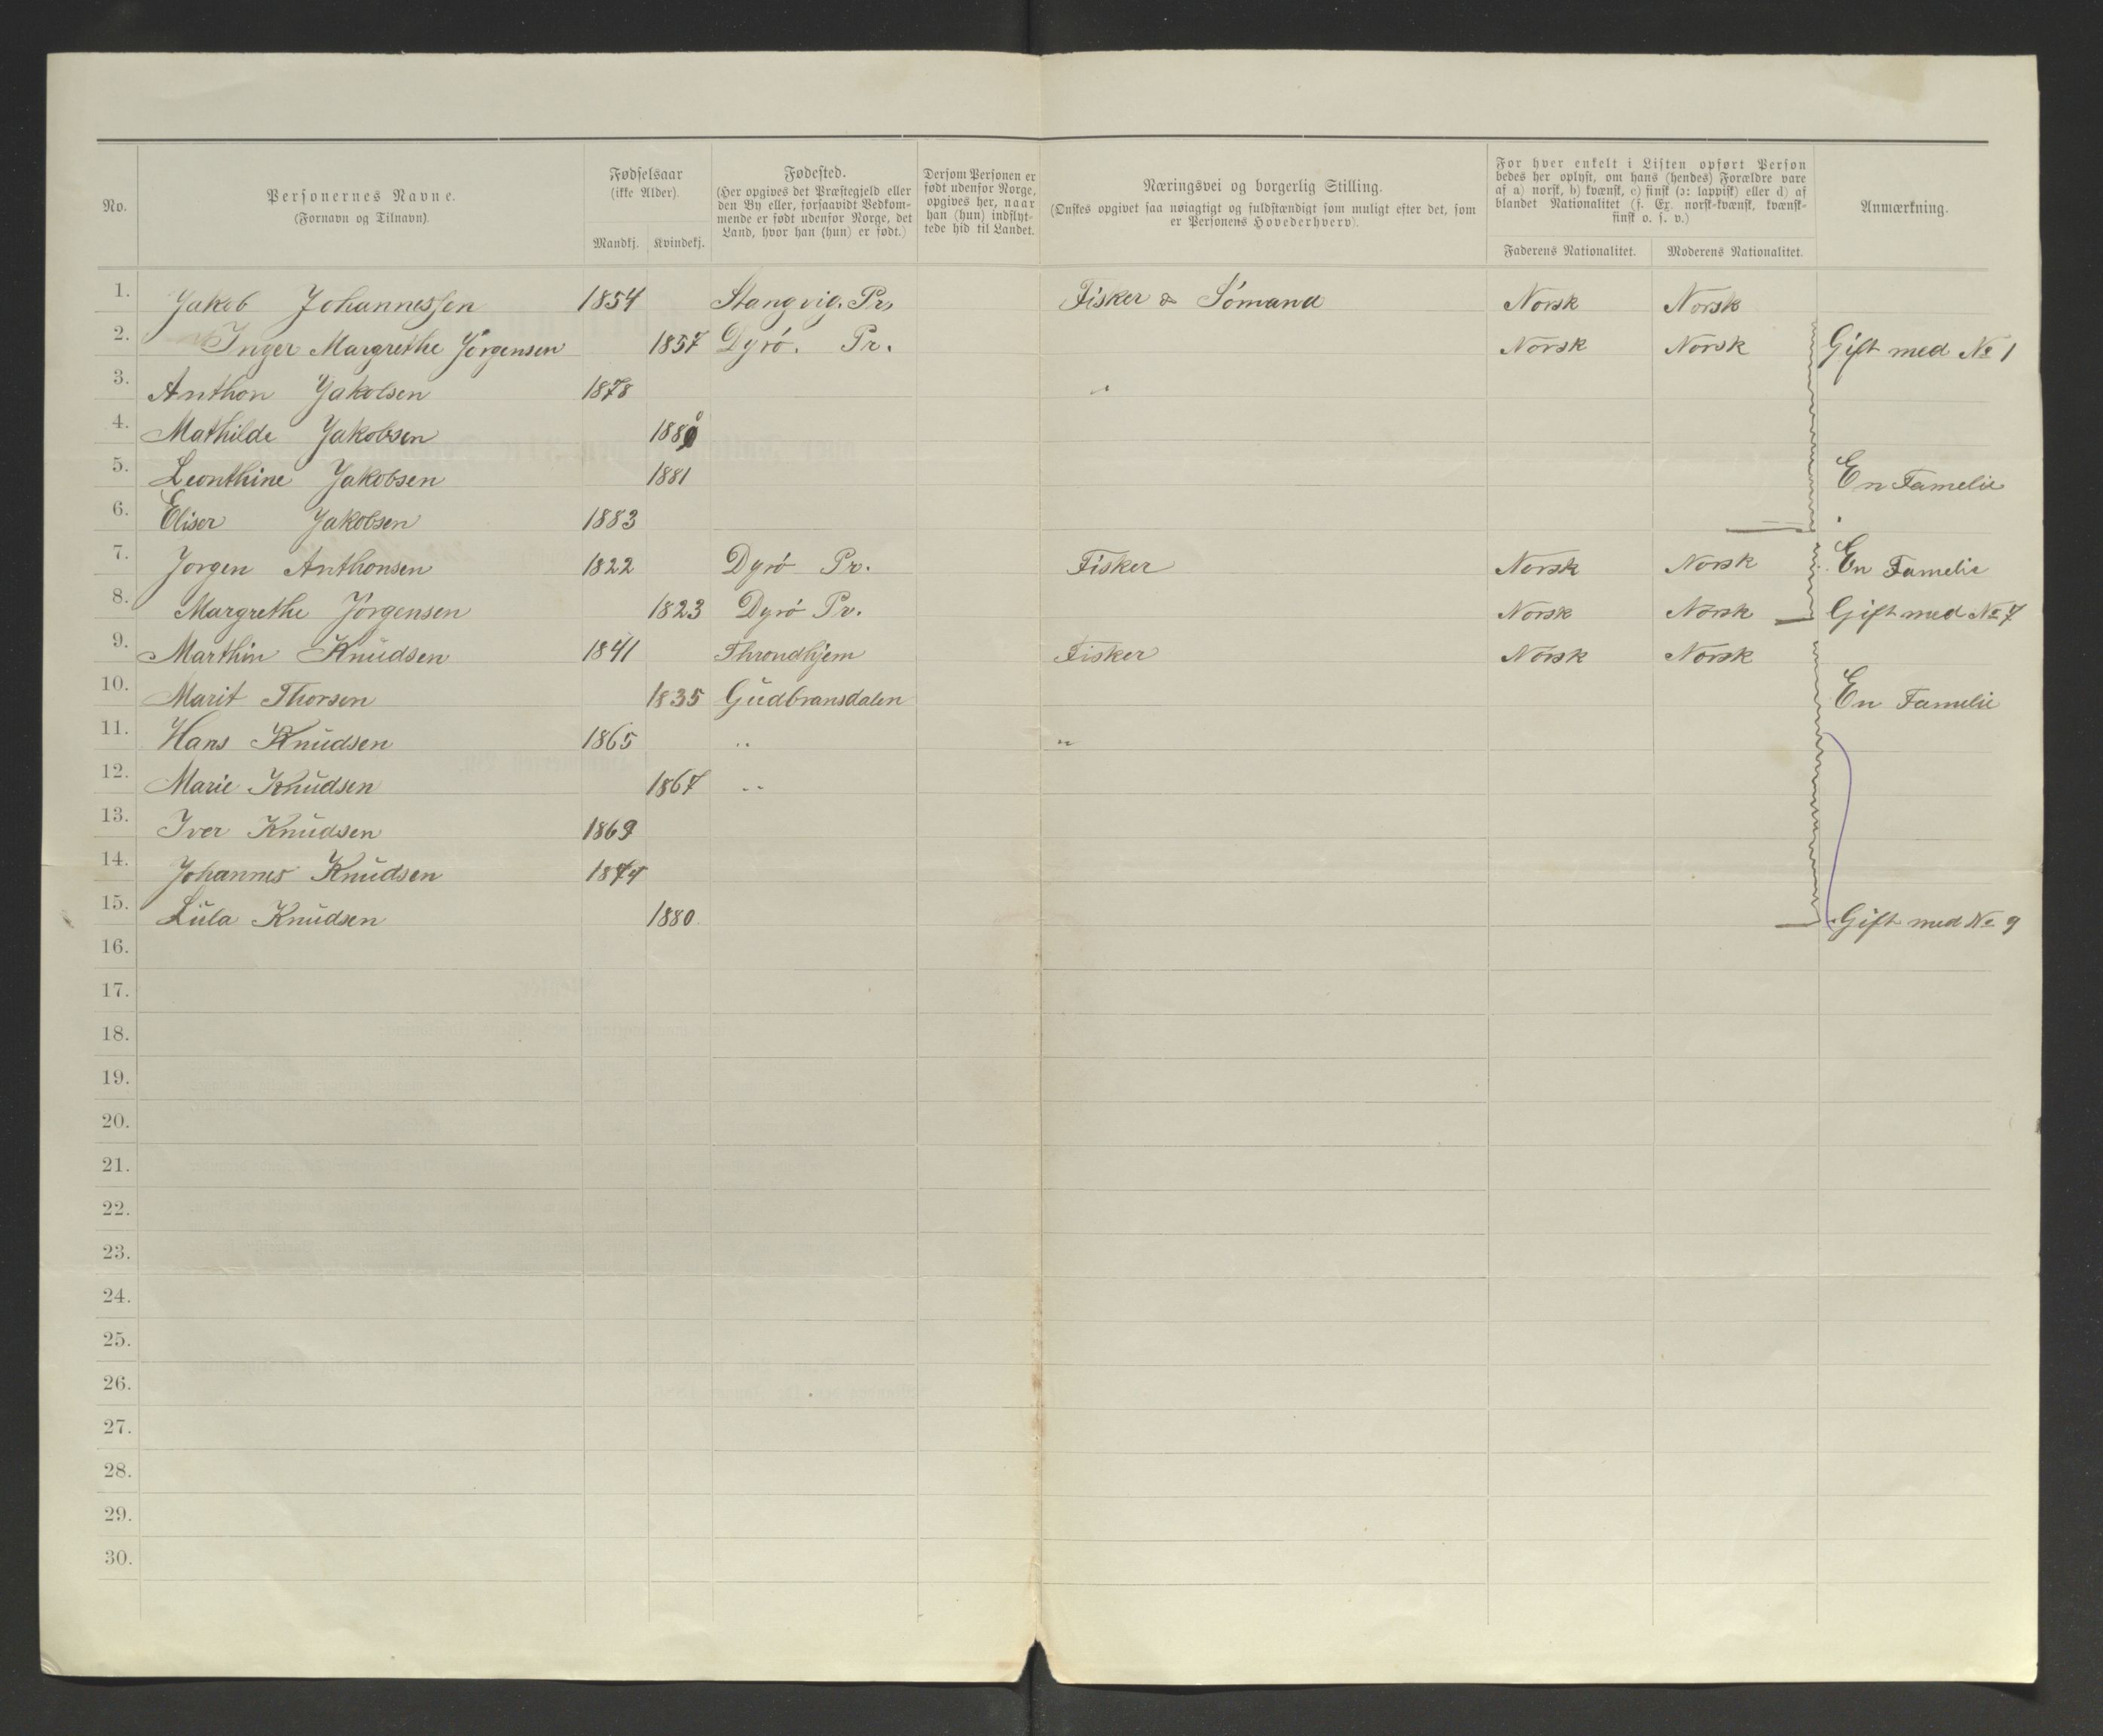 No.
Personernes Navne.
(Fornavn og Tilnavn).
Fødselsaar
(ikke Alder).
Mandkj.
Kvindekj.
Fødested.
(Her opgives det Præstegjeld eller
den By eller, forsaavidt Vedkom-
mende er født udenfor Norge, det
Land, hvor han (hun) er født.)
Dersom Personen er
født udenfor Norge,
opgives her, naar
han (hun) indflyt-
tede hid til Landet.
Næringsvei og borgerlig Stilling.
(Ønskes opgivet saa nøiagtigt og fuldstændigt som muligt efter det, som
er Personens Hovederhverv).
For hver enkelt i Listen opført Person
bedes her oplyst, om hans (hendes) Forældre vare
af a) norsk, b) kvænsk, c) finsk (ɔ: lappisk) eller d) af
blandet Nationalitet (f. Ex. norsk-kvænsk, kvænsk-
finsk o. s. v.)
Faderens Nationalitet.
Moderens Nationalitet.
Anmærkning.
1. Jakob Johannessen 1854 Stangvig. Pr, Fisker & Sómand Norsk Norsk
2. Inger Margrethe Jörgensen 1857 Dyrö. Pr. Norsk Norsk Gift med No 1
3. Anthon Jakobsen 1878 "
4. Mathilde Jakobsen 1880
5. Leonthine Jakobsen 1881 En Famelie
6. Eliser Jakobsen 1883
7. Jorgen Anthonsen 1822 Dyrö Pr. Fisker Norsk Norsk En Famelie
8. Margrethe Jörgensen 1823 Dyrö Pr. Norsk Norsk Gift med No 7
9. Marthin Knudsen 1841 Throndhjem Fisker Norsk Norsk
10. Marit Thorsen 1835 Gudbransdalen En Famelie
11. Hans Knudsen 1865 " "
12. Marie Knudsen 1867 "
13. Iver Knudsen 1869
14. Johannes Knudsen 1874
15. Lula Knudsen 1880. Gift med No 9
16.
17.
18.
19.
20.
21.
22.
23.
24.
25.
26.
27.
28.
29.
30.